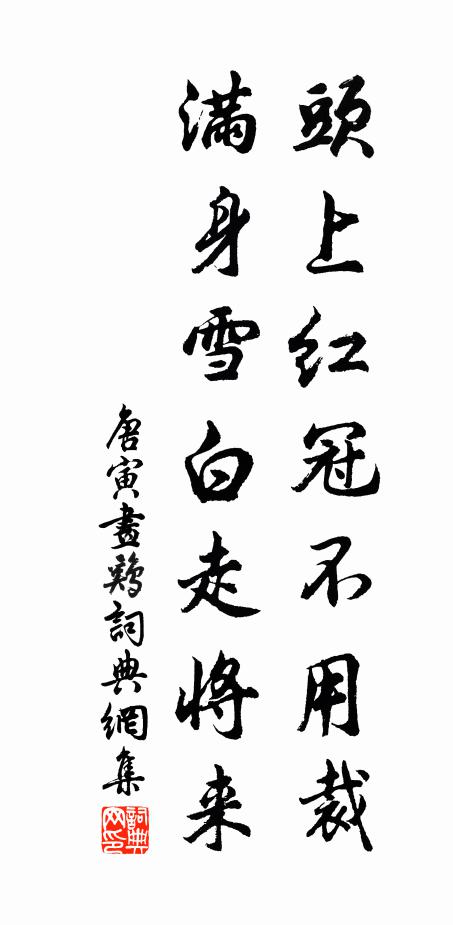 頭上紅冠不用裁
滿身雪白走將来
唐寅畫鷄詞典網集
詞典网印